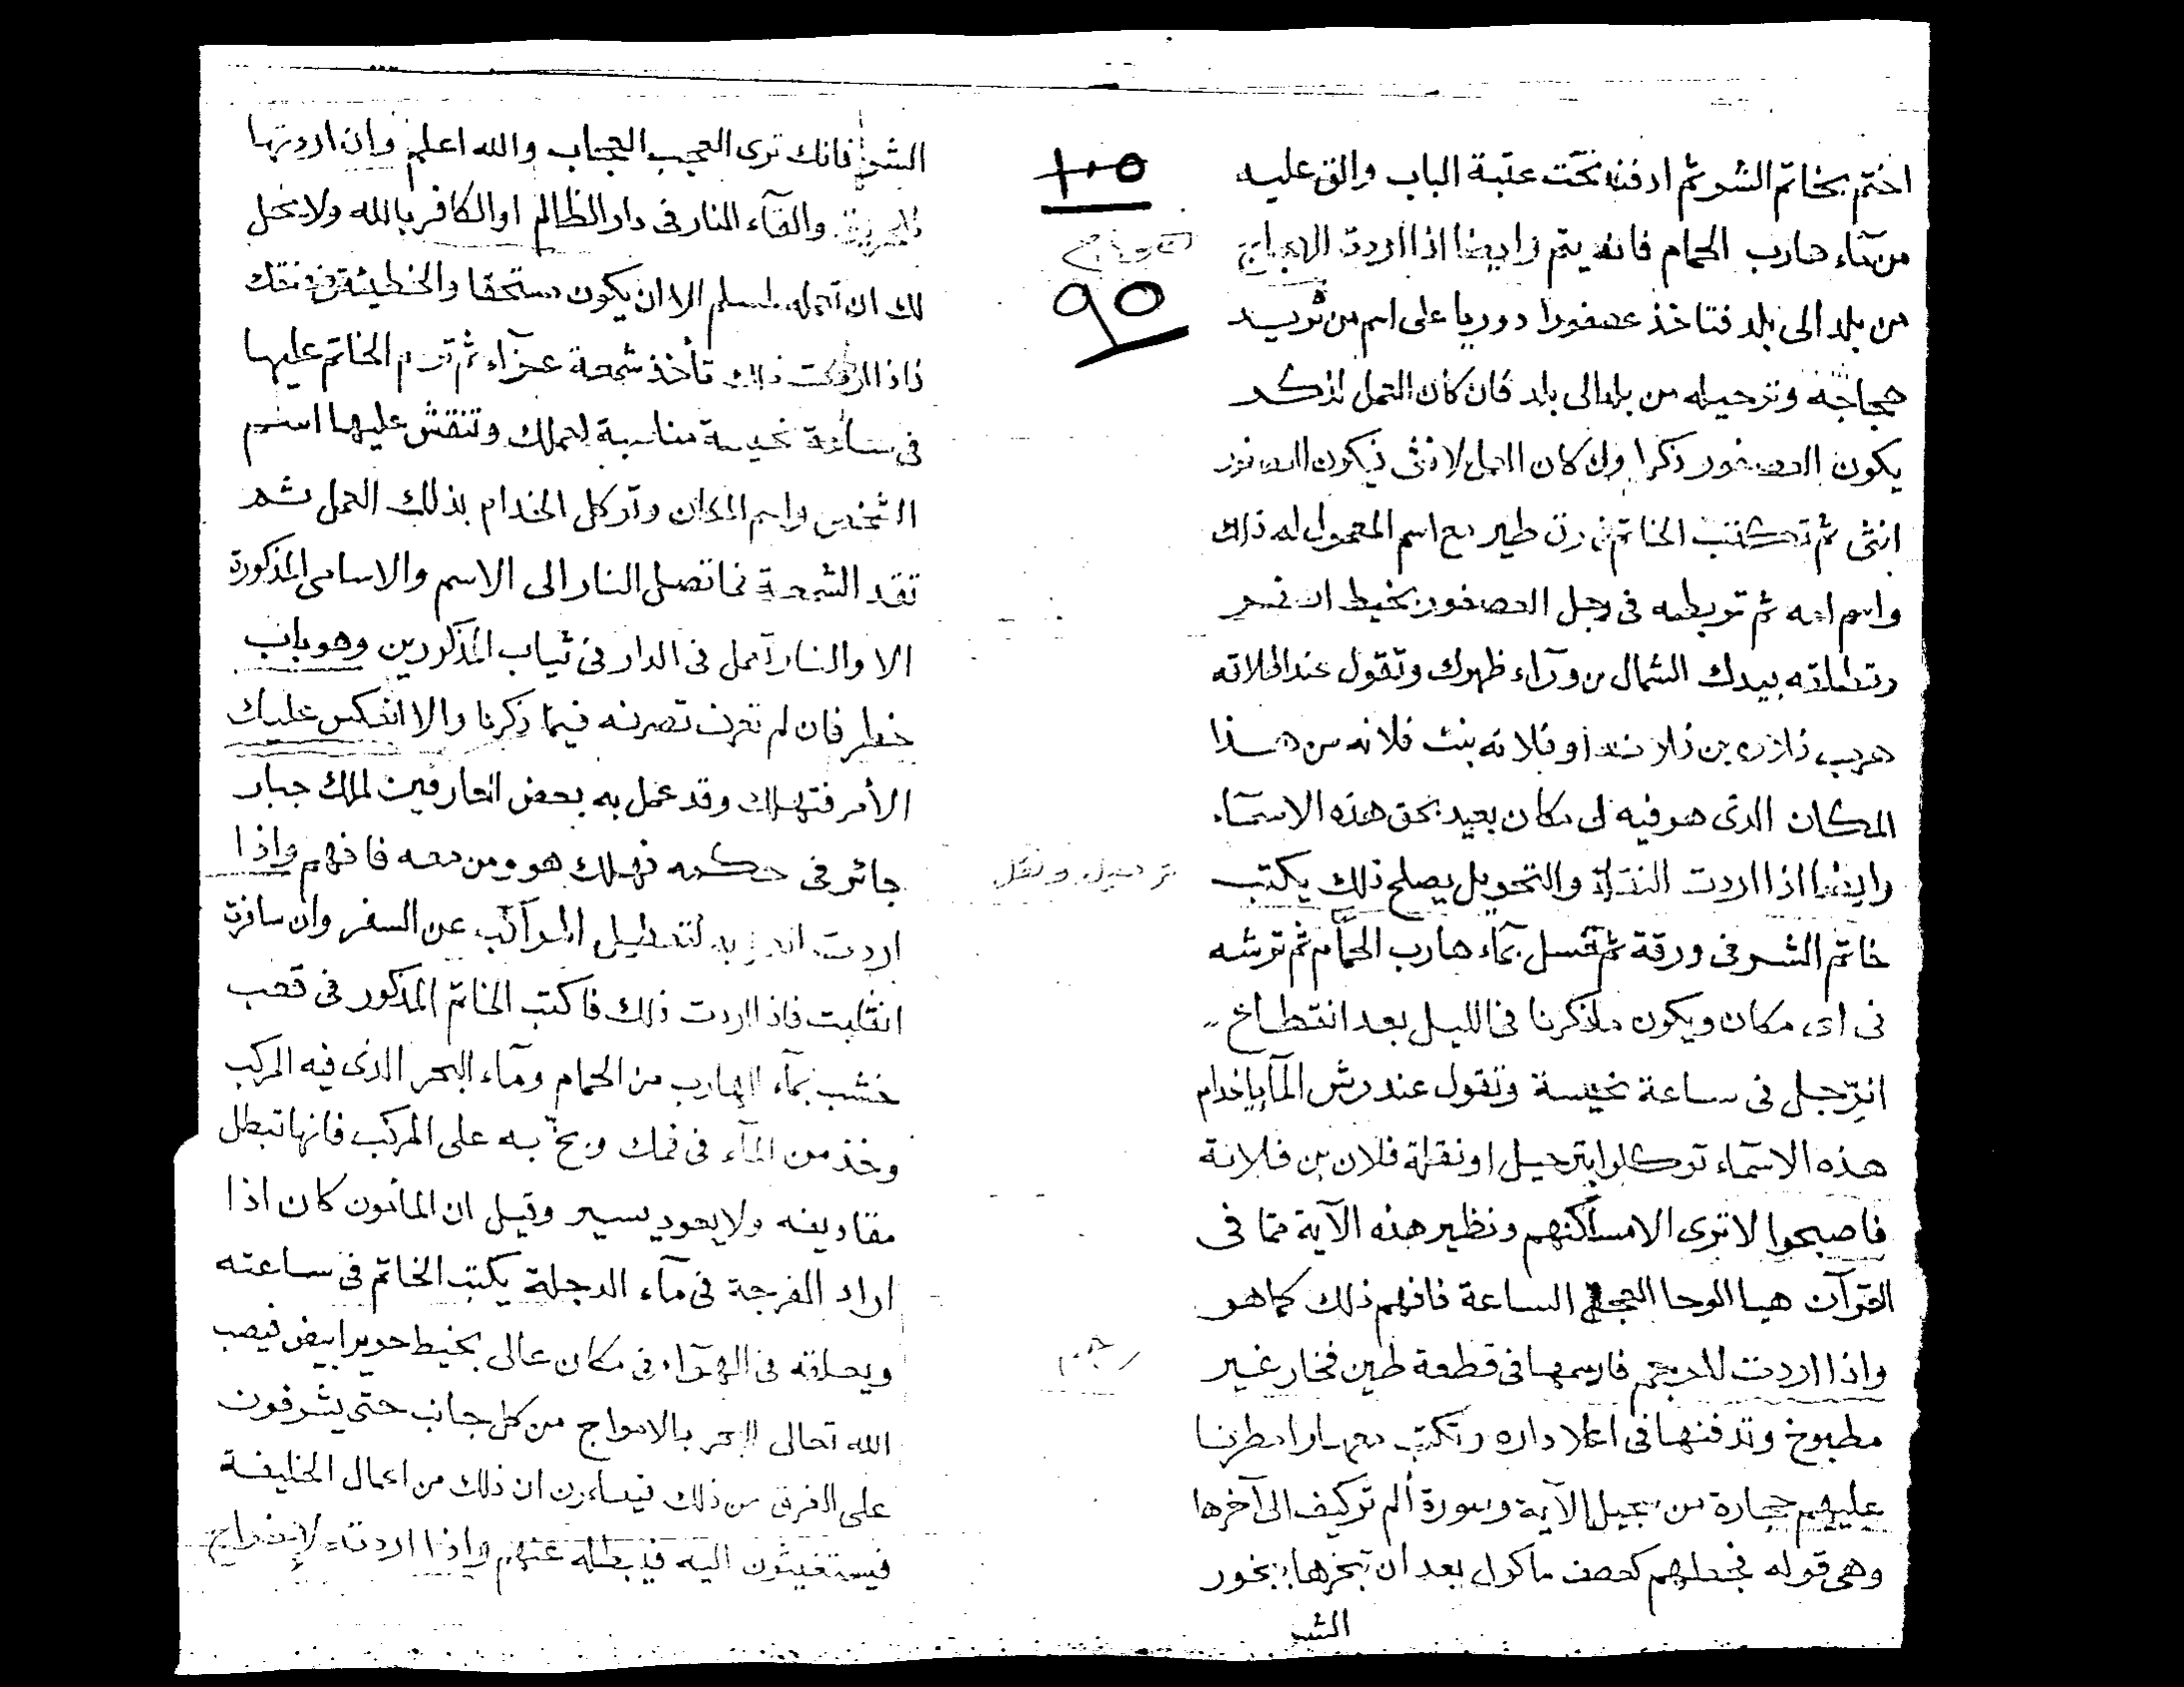 اختم بخاتم الشر ثم ادفنه تحت عتبة الباب والق عليه
من ماء هارب الحمام فانه يتم وايضا اذا اردت الهجاج
من بلد الى بلد فتاخذ عصفورا دوريا على اسم من تريد
هجاجه وترحيله من بلد الى بلد فان كان العمل لذكر
يكون العصفور ذكرا وان كان العمل لانثى فيكون العصفور
انثى ثم تكتب الخاتم فى رق طير مع اسم المعمول له ذلك
واسم امه ثم تربطه فى رجل العصفور بخيط اصفر
وتطلقه بيدك الشمال من ورآء ظهرك وتقول عند اطلاقه
هرب فلان بن فلانه او فلانه بنت فلانه من هذا
المكان الذى هو فيه الى مكان بعيد بحق هذه الاسمآء
وايضا اذا اردت النقلة والتحويل يصلح ذلك يكتب
خاتم الشر فى ورقة ثم تغسل بمآء هارب الحمام ثم ترشه
فى اى مكان ويكون ما ذكرنا فى الليل بعد انقطاع
الرجل فى ساعة نحيسة وتقول عند رش المآء يا خدام
هذه الاسمآء توكلوا بترحيل او نقلة فلان بن فلانة
فاصبحوا لا ترى الا مساكنهم ونظير هذه الآية مما فى
القرآن هيا الوحا العجل الساعة فافهم ذلك كما هو
واذا اردت للرجم فارسمها فى قطعة طين فخار غير
مطبوخ وتدفنها فى اعلا داره وتكتب معها وامطرنا
عليهم حجارة من سجيل الآية وسورة ألم تر كيف الى آخرها
وهى قوله فجعلهم كعصف ماكول بعد ان تبخرها ببخور
الشر
١٠٥
٩٥
ترحيل ونقل
رجم
الشر فانك ترى العجب العجاب والله اعلم وان اردتها
للحريق والقآء النار فى دار الظالم او الكافر بالله ولا يحل
لك ان تعمله لمسلم الا ان يكون مستحقا والخطيئة فى عنقك
فاذا اردت ذلك تأخذ شمعة عذرآء ثم ترسم الخاتم عليها
فى ساعة نحيسة مناسبة لعملك وتنقش عليها اسم
الشخص واسم المكان وتوكل الخدام بذلك العمل ثم
تقد الشمعة فما تصل النار الى الاسم والاسامى المذكورة
الا والنار تعمل فى الدار فى ثياب المذكورين وهو باب
خطر فان لم تعرف تصرفه فيما ذكرنا والا انعكس عليك
الأمر فتهلك وقد عمل به بعض العارفين لملك جبار
جائر فى حكمه فهلك هو ومن معه فافهم واذا
اردت لتعطيل المراكب عن السفر وان سافرت
انقلبت فاذا اردت ذلك فاكتب الخاتم المذكور فى قعب
خشب بمآء الهارب من الحمام ومآء البحر الذى فيه المركب
وخذ من المآء فى فمك وبخ به على المركب فانها تبطل
مقاديفه ولا يعود يسير وقيل ان المأمون كان اذا
اراد الفرجة فى مآء الدجلة يكتب الخاتم فى ساعته
ويعلقه فى الهوآء فى مكان عالى بخيط حرير ابيض فيصب
الله تعالى البحر بالامواج من كل جانب حتى يشرفون
على الغرق من ذلك فيعلمون ان ذلك من اعمال الخليفة
فيستغيثون اليه فيبطله عنهم واذا اردت لإخراج